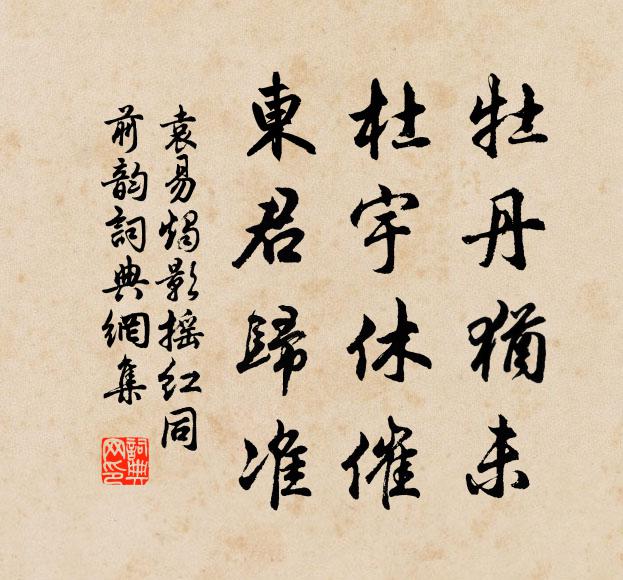 牡丹猶未
杜宇休催
東君歸准
袁易燭影搖红同
前韵詞典網集
詞典网印